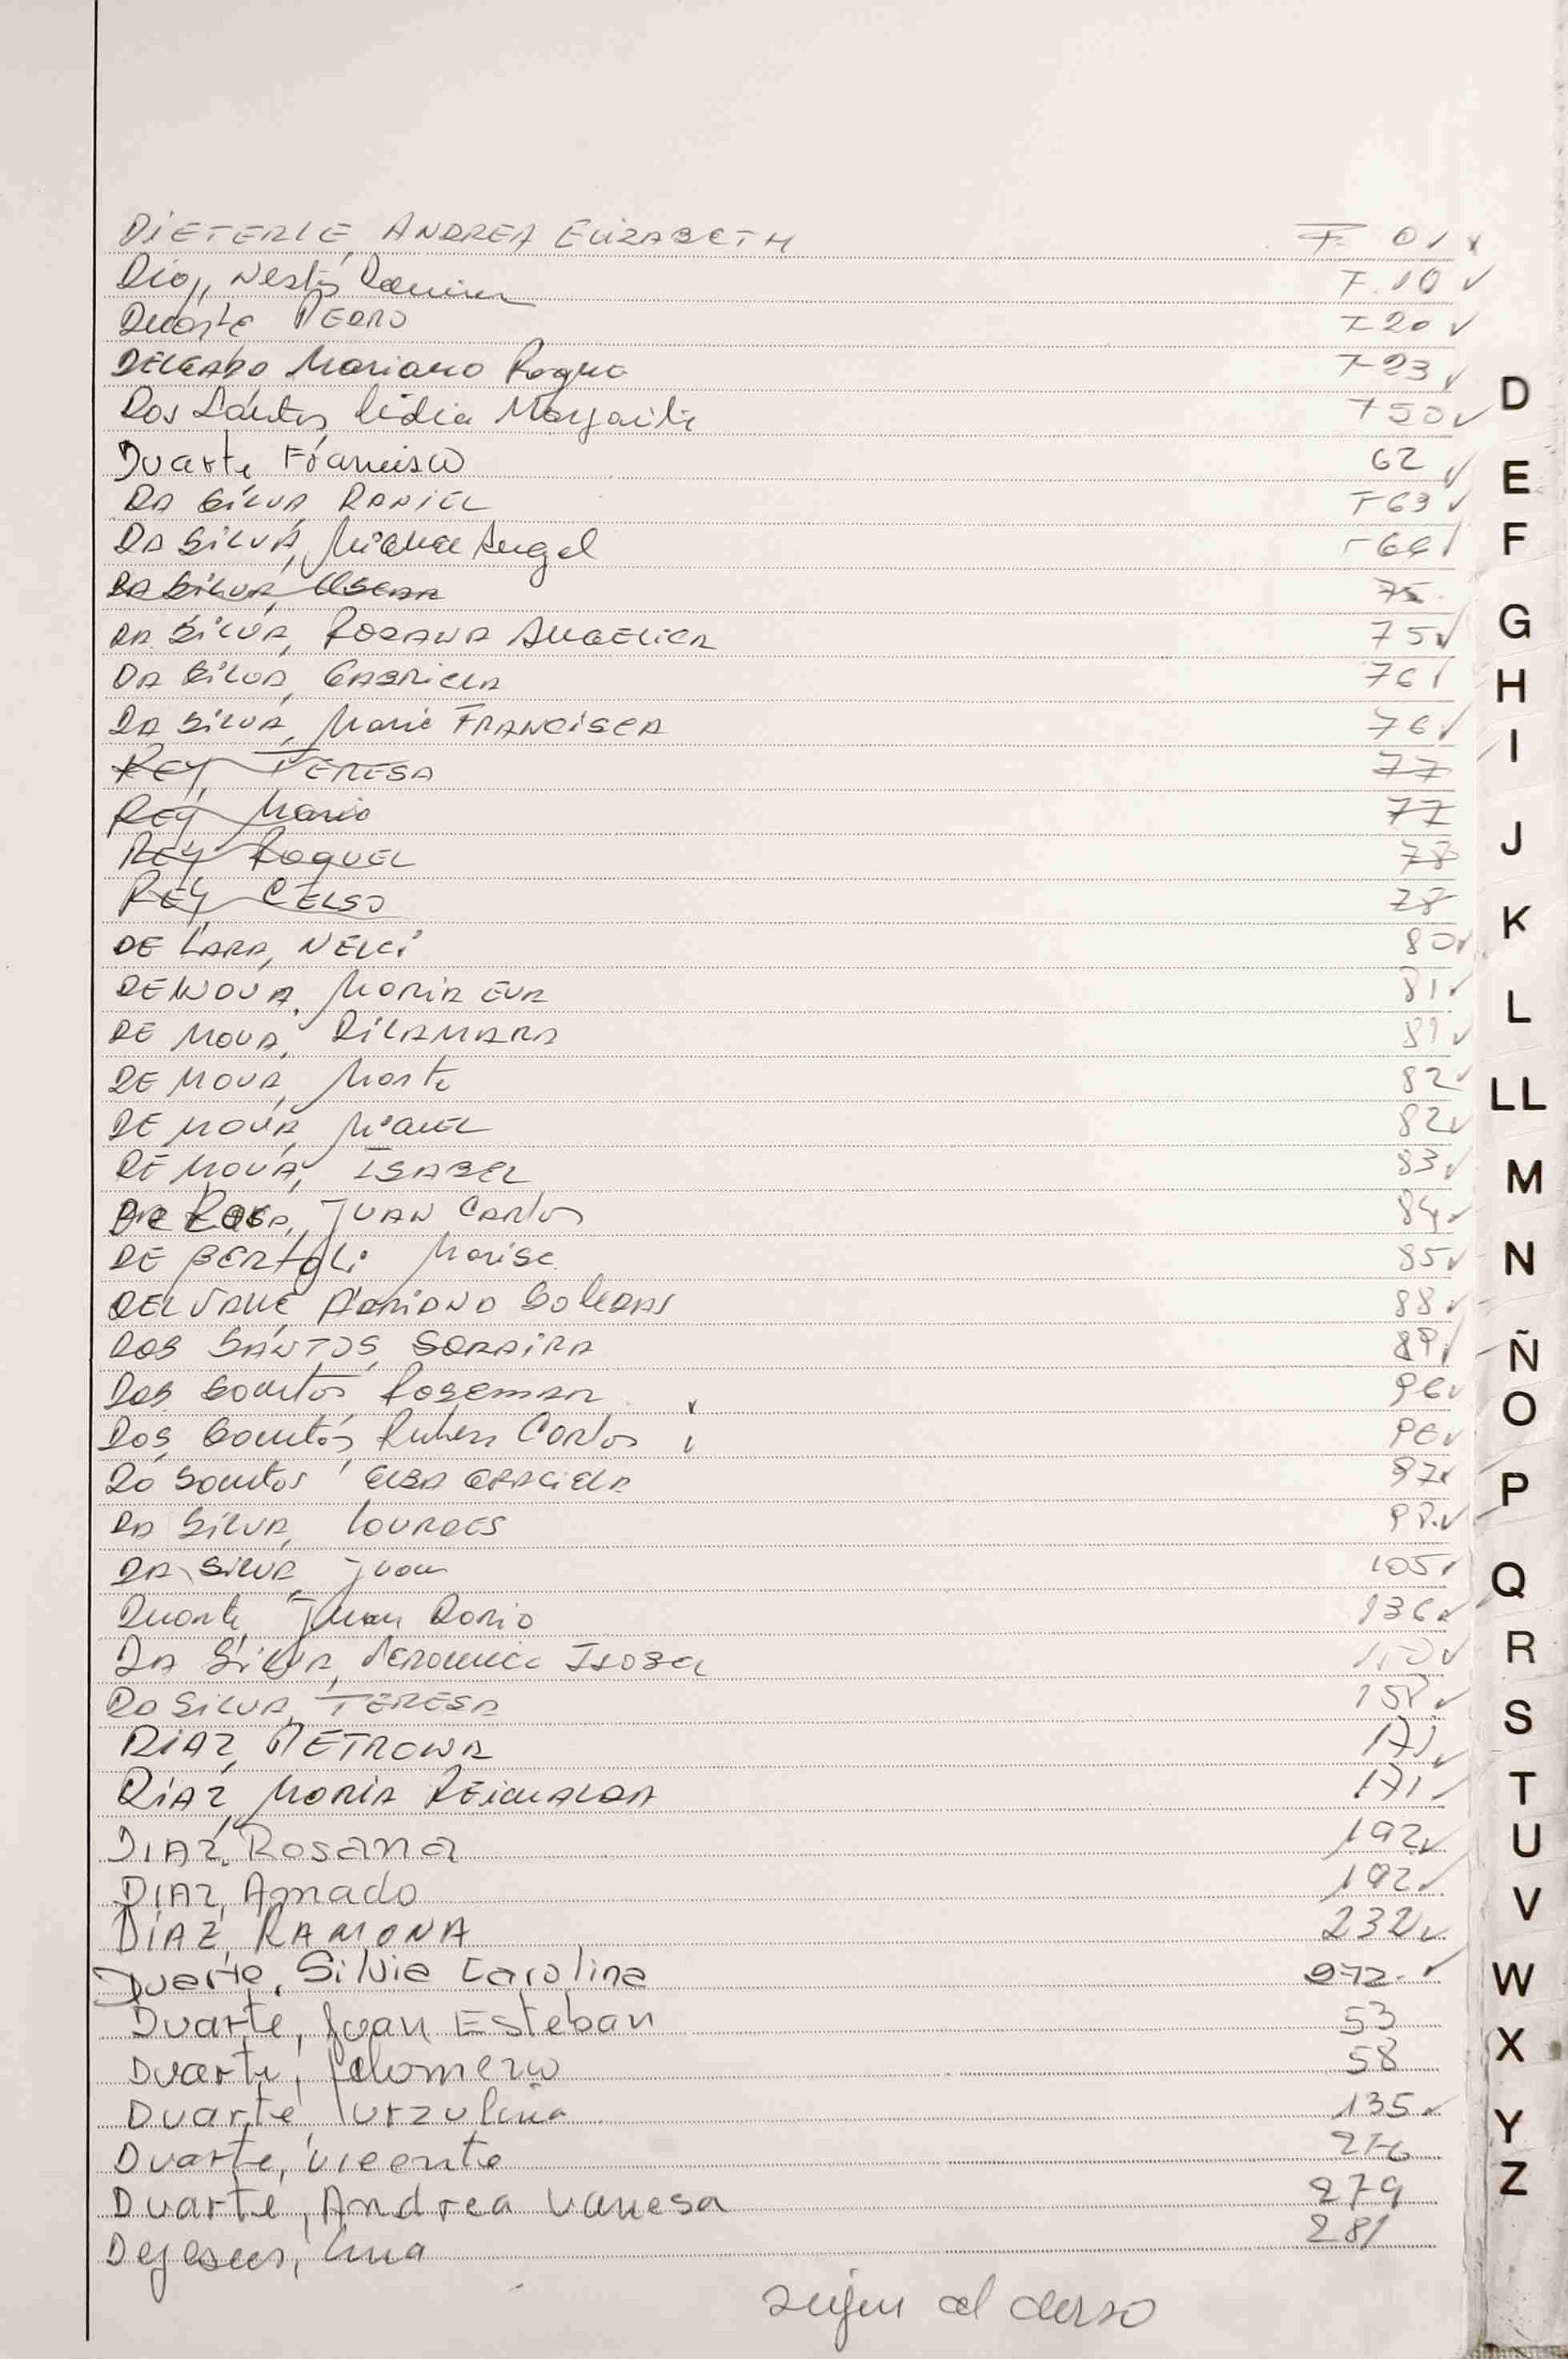 DIETERLE, ANDREA ELIZABETH F. 01
Nestor F. 10
Duarte PEDRO F 20
DELGADO Mariano Roque F 23
Dos Santos, Lidia Margarita F 50
Duarte Francisco 62
DA SILVA, DANIEL F 63
DA SILVA, Miguel Angel F 64
DA SILVA, OSCAR 75
DA SILVA, ROSANA ANGELICA 75
DA SILVA, GABRIELA 76
DA SILVA, Maria FRANCISCA 76
REY, TERESA 77
REY Mario 77
REY RAQUEL 78
REY CELSO 78
DE LARA, NELCI 80
DE MOVA, MARIA EVA 81
DE MOVA, DILAMARA 81
DE MOVA, Marta 82
DE MOVA, MIGUEL 82
DE MOVA, ISABEL 83
JUAN CARLOS 84
DE BERTOLI Marisa 85
DEL VALLE, ADRIANA SOLEDAD 88
DOS SANTOS, SORAIRA 89
Dos Santos Rosemar 96
Dos Santos, Ruben Carlos 96
Do Santos ELBA GRACIELA 97
DA SILVA, LOURDES 98
DA SILVA, Juan 105
Duarte, Juan Dario 136
DA SILVA, Veronica ISABEL
DA SILVA, TERESA 158
DIAZ, PETRONA 171
DIAZ, MARIA REINALDA 171
DIAZ, Rosana 192
DIAZ, Amado 192
DIAZ, RAMONA 232
Duarte, Silvia Carolina 272
Duarte, Juan Esteban 53
Duarte, Filomeno 58
Duarte, Turzulina 135
Duarte, Vicente 276
Duarte, Andrea Vanesa 279
Dejesus, Ana 281
sigue al dorso
D
E
F
G
H
I
J
K
L
LL
M
N
Ñ
O
P
Q
R
S
T
U
V
W
X
Y
Z